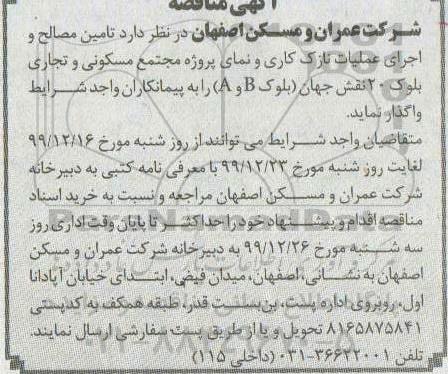 آگهی مناقصه
شرکت عمران و مسکن اصفهان در نظر دارد تامین مصالح و
اجرای عملیات نازک کاری و نمای پروژه مجتمع مسکونی و تجاری
بلوک ۲۰ نقش جهان (بلوک B و A) را به پیمانکاران واجد شرایط
واگذار نماید.
متقاضیان واجد شرایط می توانند از روز شنبه مورخ ۹۹/۱۲/۱۶
لغایت روز شنبه مورخ ۹۹/۱۲/۲۳ با معرفی نامه کتبی به دبیرخانه
شرکت عمران و مسکن اصفهان مراجعه و نسبت به خرید اسناد
مناقصه اقدام و پیشنهاد خود را حداکثر تا پایان وقت اداری روز
سه شنبه مورخ ۹۹/۱۲/۲۶ به دبیرخانه شرکت عمران و مسکن
اصفهان به نشانی، اصفهان، میدان فیض، ابتدای خیابان آپادانا
اول، روبروی اداره پست، بن بست قدر، طبقه همکف به کدپستی
۸۱۶۵۸۷۵۸۴۱ تحویل و یا از طریق پست سفارشی ارسال نمایند.
تلفن ۳۶۶۲۲۰۰۱-۰۳۱ (داخلی ۱۱۵)